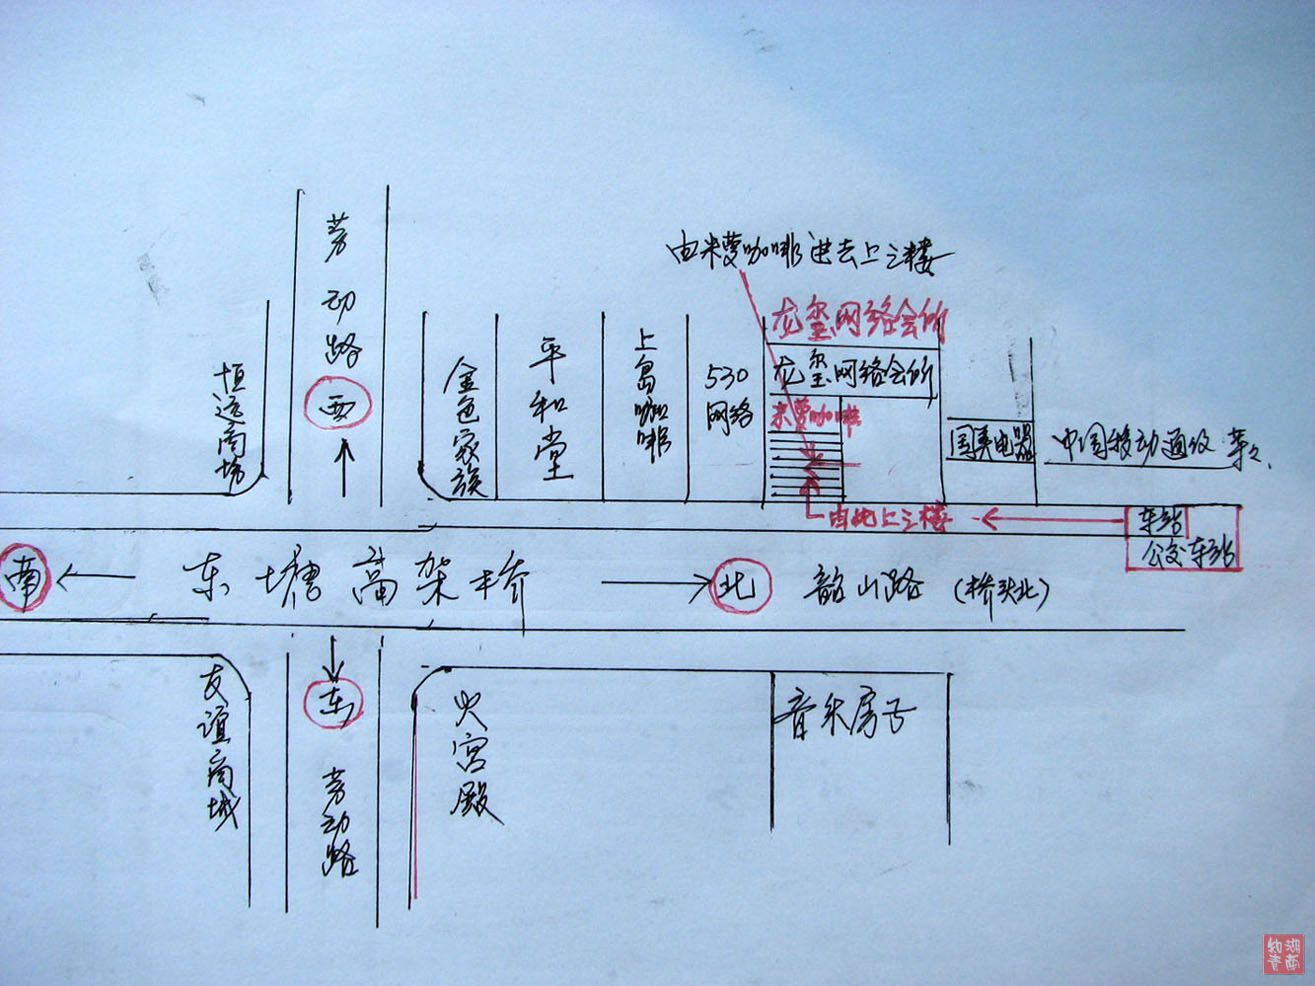 劳动路
西
由米萝咖啡进去上三楼
龙玺网络会所
龙玺网络会所
米萝咖啡
恒运商场
金色家族
平和堂
上岛咖啡
530
网络
国美电器
中国移动通仪
由此上三楼
车站
公交车站
南
东塘高架桥
北
韶山路(桥头北)
东
劳动路
友谊商城
火宫殿
音乐房子
湖南
知青